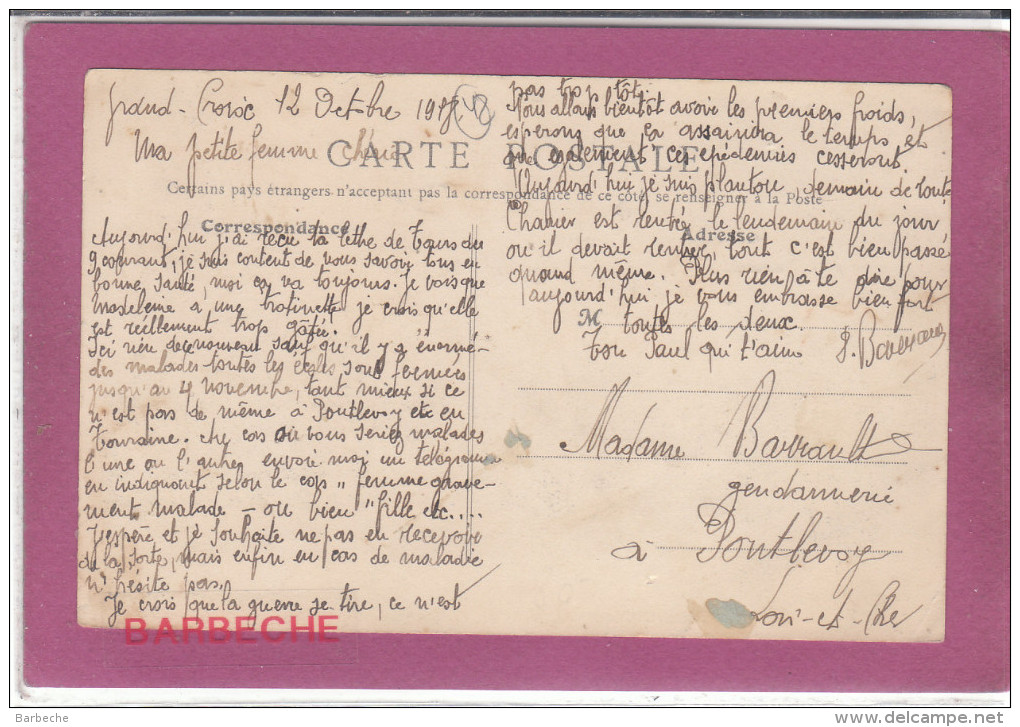 Grand-Croix 12 Octobre 1918
Ma petite femme chérie
CARTE POSTALE
Certains pays étrangers n'acceptant pas la correspondance de ce côté, se renseigner à la Poste
Correspondance
Aujourd'hui j'ai reçu ta lettre de Tours du
9 courant, je suis content de vous savoir tous en
bonne santé, moi ça va toujours. Je vois que
Madeleine a une trotinette je crois qu'elle
est réellement trop gâtée.
Ici rien de nouveau sauf qu'il y a enormé-
des malades toutes les écoles sont fermées
jusqu'au 4 novembre, tant mieux si ce
n'est pas de même à Pontlevoy etc en
Touraine. Au cas où vous seriez malades
l'une ou l'autre envoie moi un télégramme
en indiquant selon le cas " femme grave-
ment malade - ou bien " fille etc....
J'espère et je souhaite ne pas en recevoir
de la sorte, mais enfin en cas de maladie
n'hésite pas.
Je crois que la guerre se tire, ce n'est
pas trop tôt.
Nous allons bientôt avoir les premiers froids,
esperons que ça assainira le temps et
que egalement ces epedemies cesseront
Aujourd'hui je suis planton, demain de route
est rentrée le lendemain du jour
ou il devait rentrer, tout c'est bien passé
quand même. Plus rien à te dire pour
aujourd'hui je vous embrasse bien fort
toutes les deux.
Ton Paul qui t'aime
Adresse
M
Madame Barrault
gendarmerie
à Pontlevoy
Loir-et-Cher
BARBECHE
Barbeche
www.delcampe.net